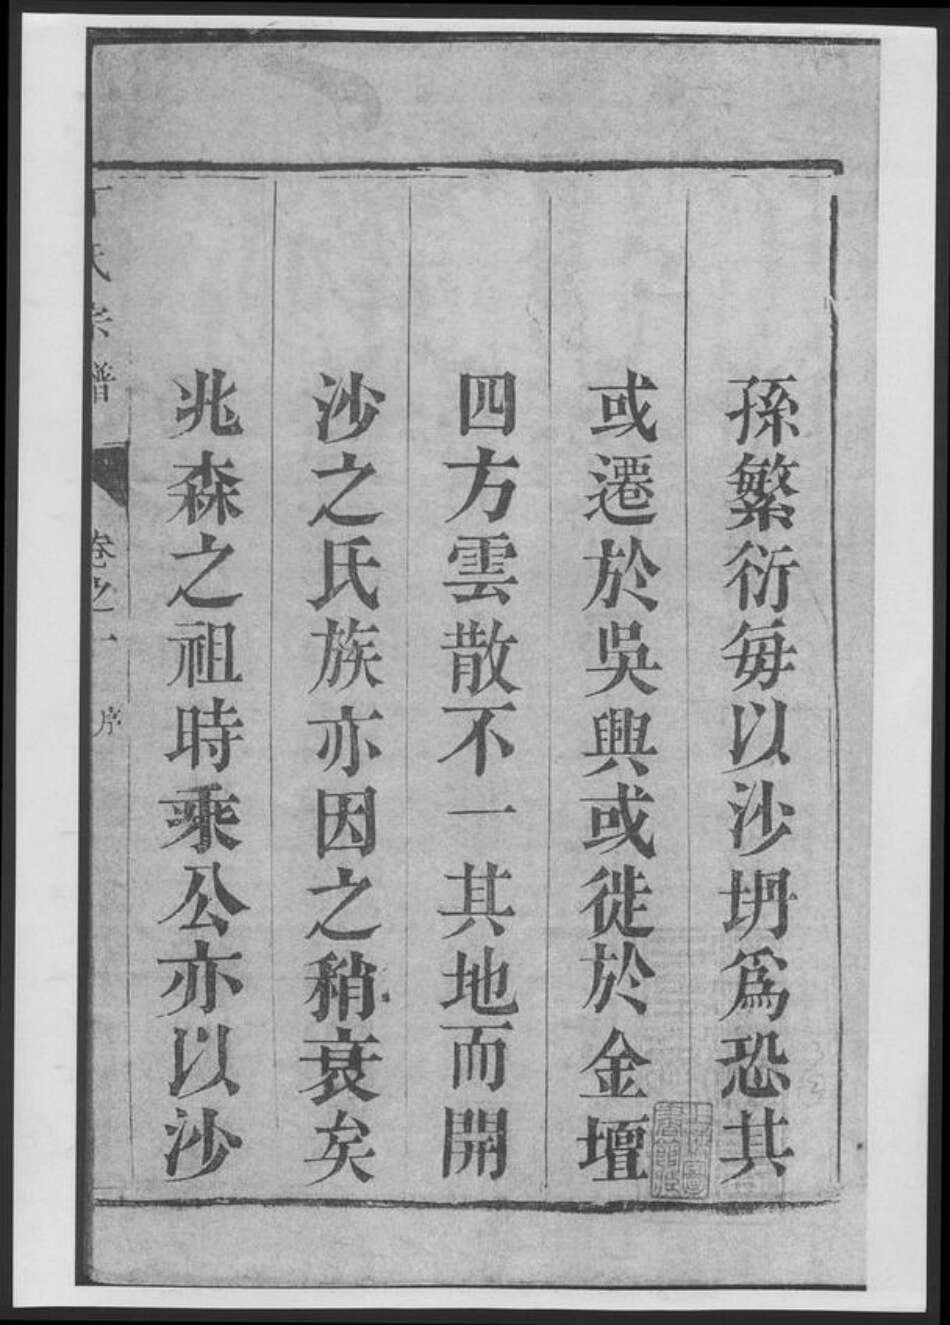 孫繁衍每以沙坍為恐其
或遷於吳興或徙於金壇
四方雲散不一其地而開
沙之氏族亦因之稍衰矣
兆森之祖時乘公亦以沙
氏宗譜 卷之一 序